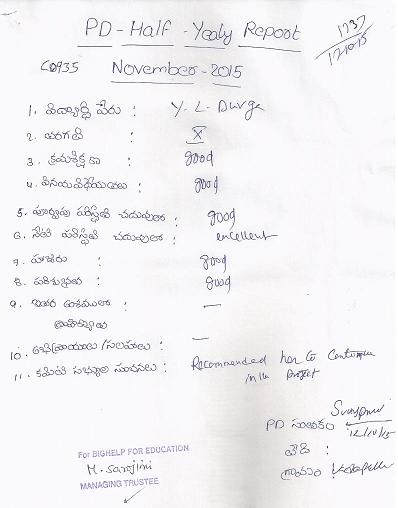 PD-Half-Yealy Report
1737
12/10/15
C0935 November-2015
1. విద్యార్థి పేరు : Y. L. Durga
2. తరగతి : X
3. క్రమశిక్షణ : good
4. వినయవిధేయతలు : good
5. పూర్వపు పరిస్థితి చదువులో : good
6. నేటి పరిస్థితి చదువులో : excellent
7. హాజరు : good
8. పరిశుభ్రత : good
9. ఇతర అంశములు : —
10. అభిప్రాయాలు/సలహాలు : —
11. కమిటి సభ్యుల సూచనలు : Recommended her to Continue
in the project
PD సంతకం
12/10/15
తేది :
గ్రామం :
For BIGHELP FOR EDUCATION
M. Sarojini
MANAGING TRUSTEE